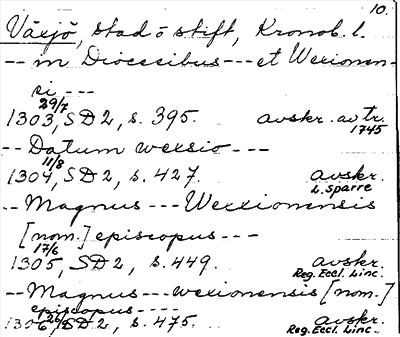 10.
Växjö, stad o stift, Kronob. l.
-- in Diocesibus --- et Wexionen-
si ---
29/7
1303, SD 2, s. 395. avskr. av tr.
1745
-- Datum wexsio ---
11/8
1304, SD 2, s. 427. avskr.
L. Sparre
-- Magnus --- Wexionensis
[nom.] episcopus ---
17/6
1305, SD 2, s. 449. avskr.
Reg. Eccl. Linc.
-- Magnus --- wexionensis [nom.]
episcopus ----
1306, SD 2, s. 475. avskr.
Reg. Eccl. Linc.